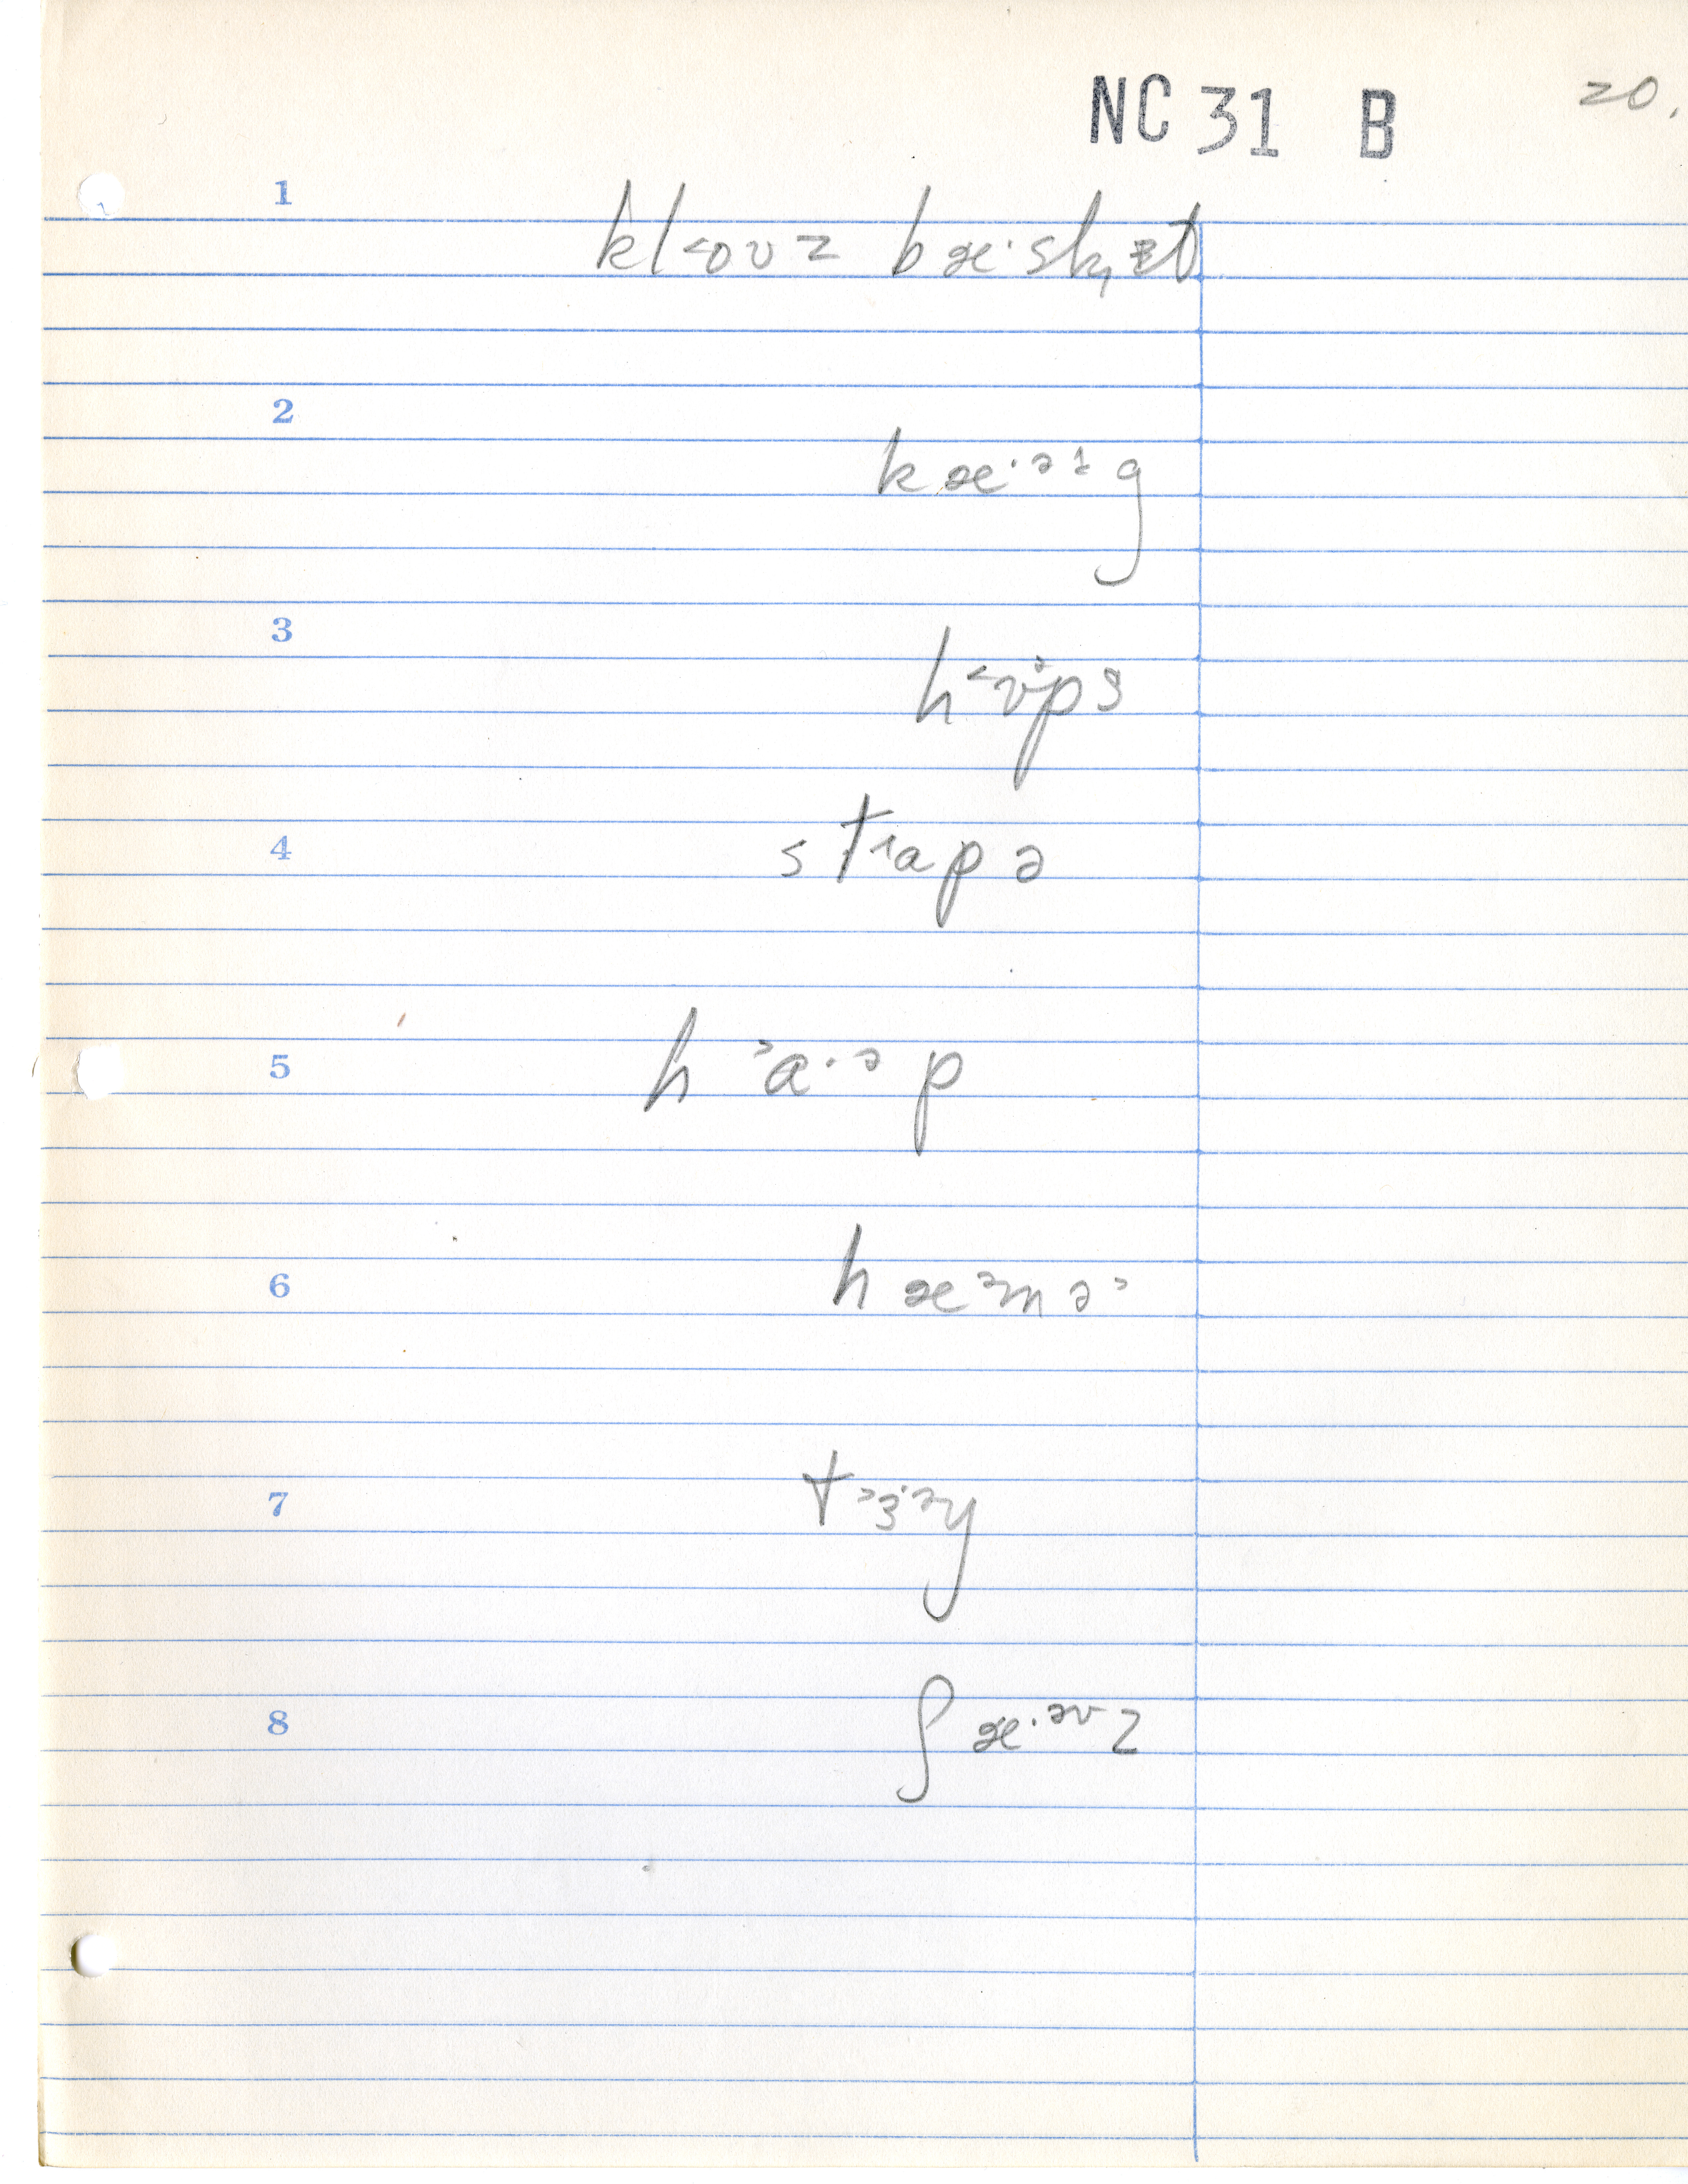 NC 31 B 20.
1 kl˂oʊz bæ·sk̟ɛt
2 kæ·ᵊᶤg
3 h˂ʊᵊps
4 stɹapə
5 h˃a·ᵊp
6 hæᵊmə˃
7 t˃ɜ·ᵊy
8 ʃæ·ᵊᶷz